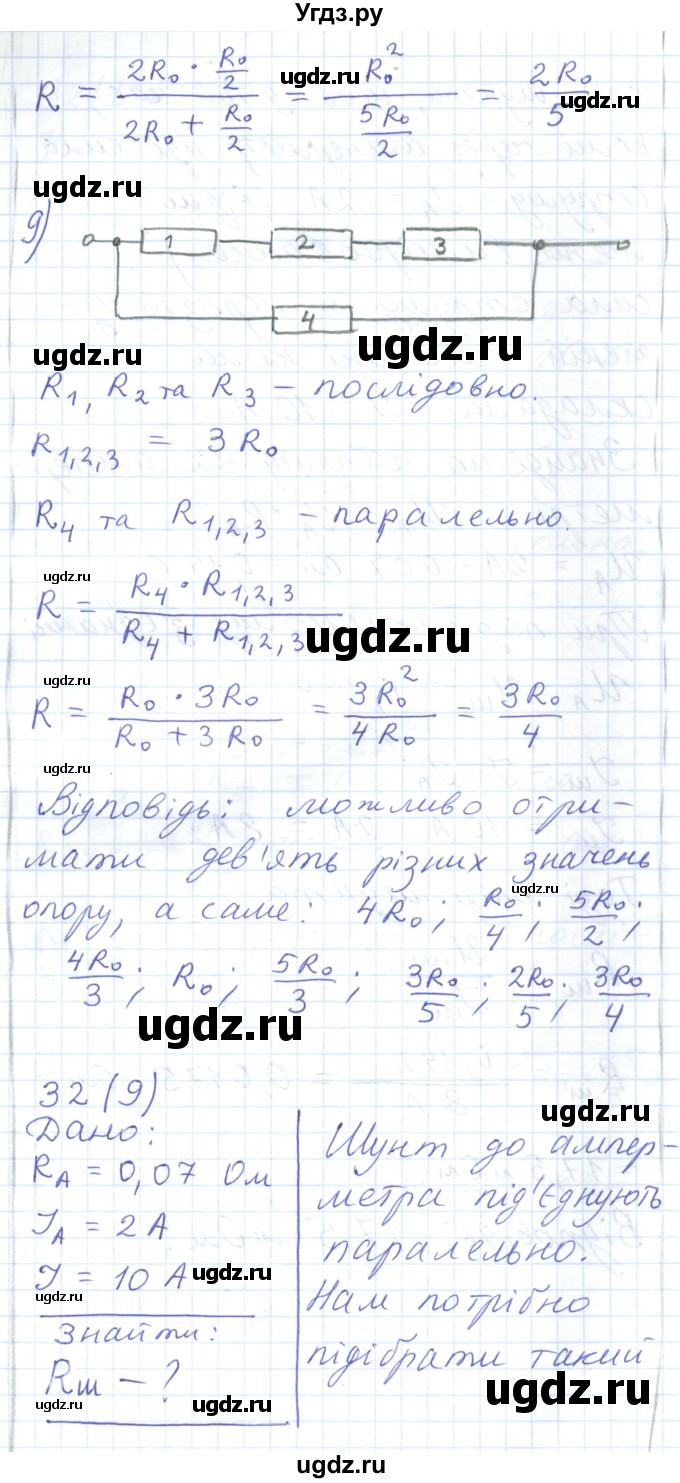 Угдз.ру
R = (2R₀ · R₀/2) / (2R₀ + R₀/2) = R₀² / (5R₀/2) = 2R₀/5
ugdz.ru
ugdz.ru
9)
1 2 3
4
ugdz.ru
ugdz.ru
R₁, R₂ та R₃ – послідовно.
R₁,₂,₃ = 3R₀
R₄ та R₁,₂,₃ – паралельно.
ugdz.ru
R = (R₄ · R₁,₂,₃) / (R₄ + R₁,₂,₃)
ugdz.ru
ugdz.ru
R = (R₀ · 3R₀) / (R₀ + 3R₀) = 3R₀² / 4R₀ = 3R₀/4
ugdz.ru
Відповідь: можливо отри-
мати дев'ять різних значень
ugdz.ru
опору, а саме: 4R₀; R₀/4; 5R₀/2;
4R₀/3; R₀; 5R₀/3; 3R₀/5; 2R₀/5; 3R₀/4
ugdz.ru
32 (9)
ugdz.ru
Дано:
R_A = 0,07 Ом
I_A = 2 А
I = 10 А
ugdz.ru
ugdz.ru
Знайти:
Rш – ?
ugdz.ru
ugdz.ru
Шунт до ампер-
метра під'єднують
паралельно.
Нам потрібно
підібрати такий
ugdz.ru
ugdz.ru